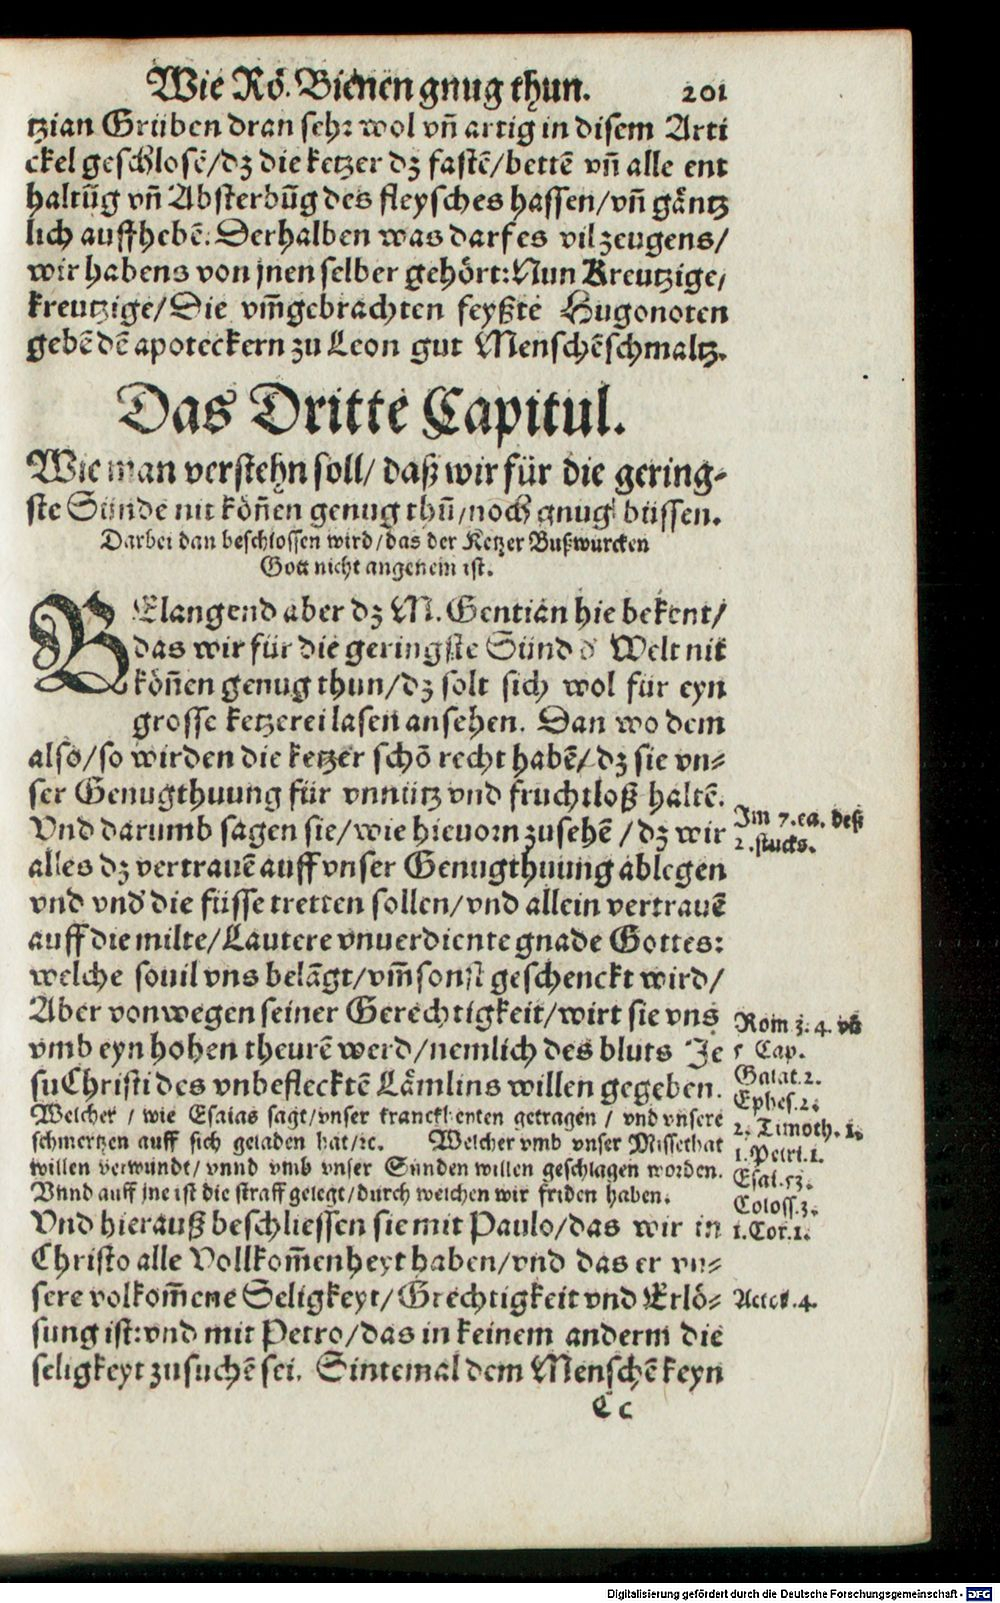 Wie Rö. Bienen gnug thun. 201
tzian Grüben dran sehr wol vñ artig in disem Arti
ckel geschlosē/dz die ketzer dz fastē/bettē vñ alle ent
haltūg vñ Absterbūg des fleysches hassen/vñ gäntz
lich auffhebē. Derhalben was darf es vil zeugens/
wir habens von jnen selber gehört: Nun Kreutzige,
kreutzige/Die vm̄gebrachten feyßtē Hugonoten
gebē dē apoteckern zu Leon gut Menschēschmaltz.
Das Dritte Capitul.
Wie man verstehn soll/ daß wir für die gering-
ste Sünde nit köñen genug thū/noch gnug büssen.
Darbei dan beschlossen wird/das der Ketzer Bußwürcken
Gott nicht angenem ist.
BElangend aber dz M. Gentian hie bekent/
das wir für die geringste Sünd d' Welt nit
köñen genug thun/dz solt sich wol für eyn
grosse ketzerei lasen ansehen. Dan wo dem
also/so wirden die ketzer schō recht habē/dz sie vn-
ser Genugthuung für vnnütz vnd fruchtloß haltē.
Vnd darumb sagen sie/wie hieuorn zusehē/dz wir
alles dz vertrauē auff vnser Genugthuung ablegen
vnd vnd' die füsse tretten sollen/vnd allein vertrauē
auff die milte/Lautere vnuerdiente gnade Gottes:
welche souil vns belāgt/vm̄sonst geschenckt wird/
Aber von wegen seiner Gerechtigkeit/wirt sie vns
vmb eyn hohen theurē werd/nemlich des bluts Je
su Christi des vnbeflecktē Lämlins willen gegeben.
Welcher / wie Esaias sagt/vnser kranckheyten getragen / vnd vnsere
schmertzen auff sich geladen hat/ꝛc. Welcher vmb vnser Missethat
willen verwundt/ vnnd vmb vnser Sünden willen geschlagen worden.
Vnnd auff jne ist die straff gelegt/durch welchen wir friden haben.
Vnd hierauß beschliessen sie mit Paulo/das wir in
Christo alle Vollkom̄enheyt haben/vnd das er vn-
sere volkom̄ene Seligkeyt/Grechtigkeit vnd Erlö-
sung ist: vnd mit Petro/das in keinem anderm die
seligkeyt zusuchē sei. Sintemal dem Menschē keyn
Cc
Im 7. ca. deß
2. stucks.
Rom 3. 4. vñ
5 Cap.
Galat. 2.
Ephes. 2.
2. Timoth. 1.
1. Petri. 1.
Esai. 53.
Coloss. 3.
1. Cor. 1.
Actor. 4.
Digitalisierung gefördert durch die Deutsche Forschungsgemeinschaft - DFG